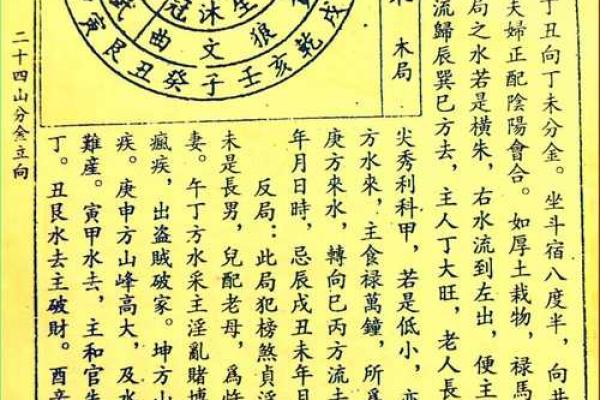 丁丑向丁未分金。坐斗宿八度半，向井
夫婦正配陰陽會合。如厚土栽物，祿馬
局之水若是橫朱，右水流到左出，便主
流歸辰巽巳方去，主人丁大旺，老人長
木局
尖秀利科甲，若是低小，亦
方水來，主食祿萬鐘，所為
庚方來水，轉向巳丙方流
年月日時，忌辰戌丑未年月
反局：此局犯榜煞貞淫
未是長男，兒配老母，為
妻。午丁方水采主淫亂賭博
瘋疾，出盜賊破家。坤方山
疾。庚申方山峰高大，及水
難産。寅甲水去，主和官失
丁。丑艮水去主破財。酉辛
冠沐生
曲文狼
寅艮丑癸子壬亥乾戌
二十四山分金立向